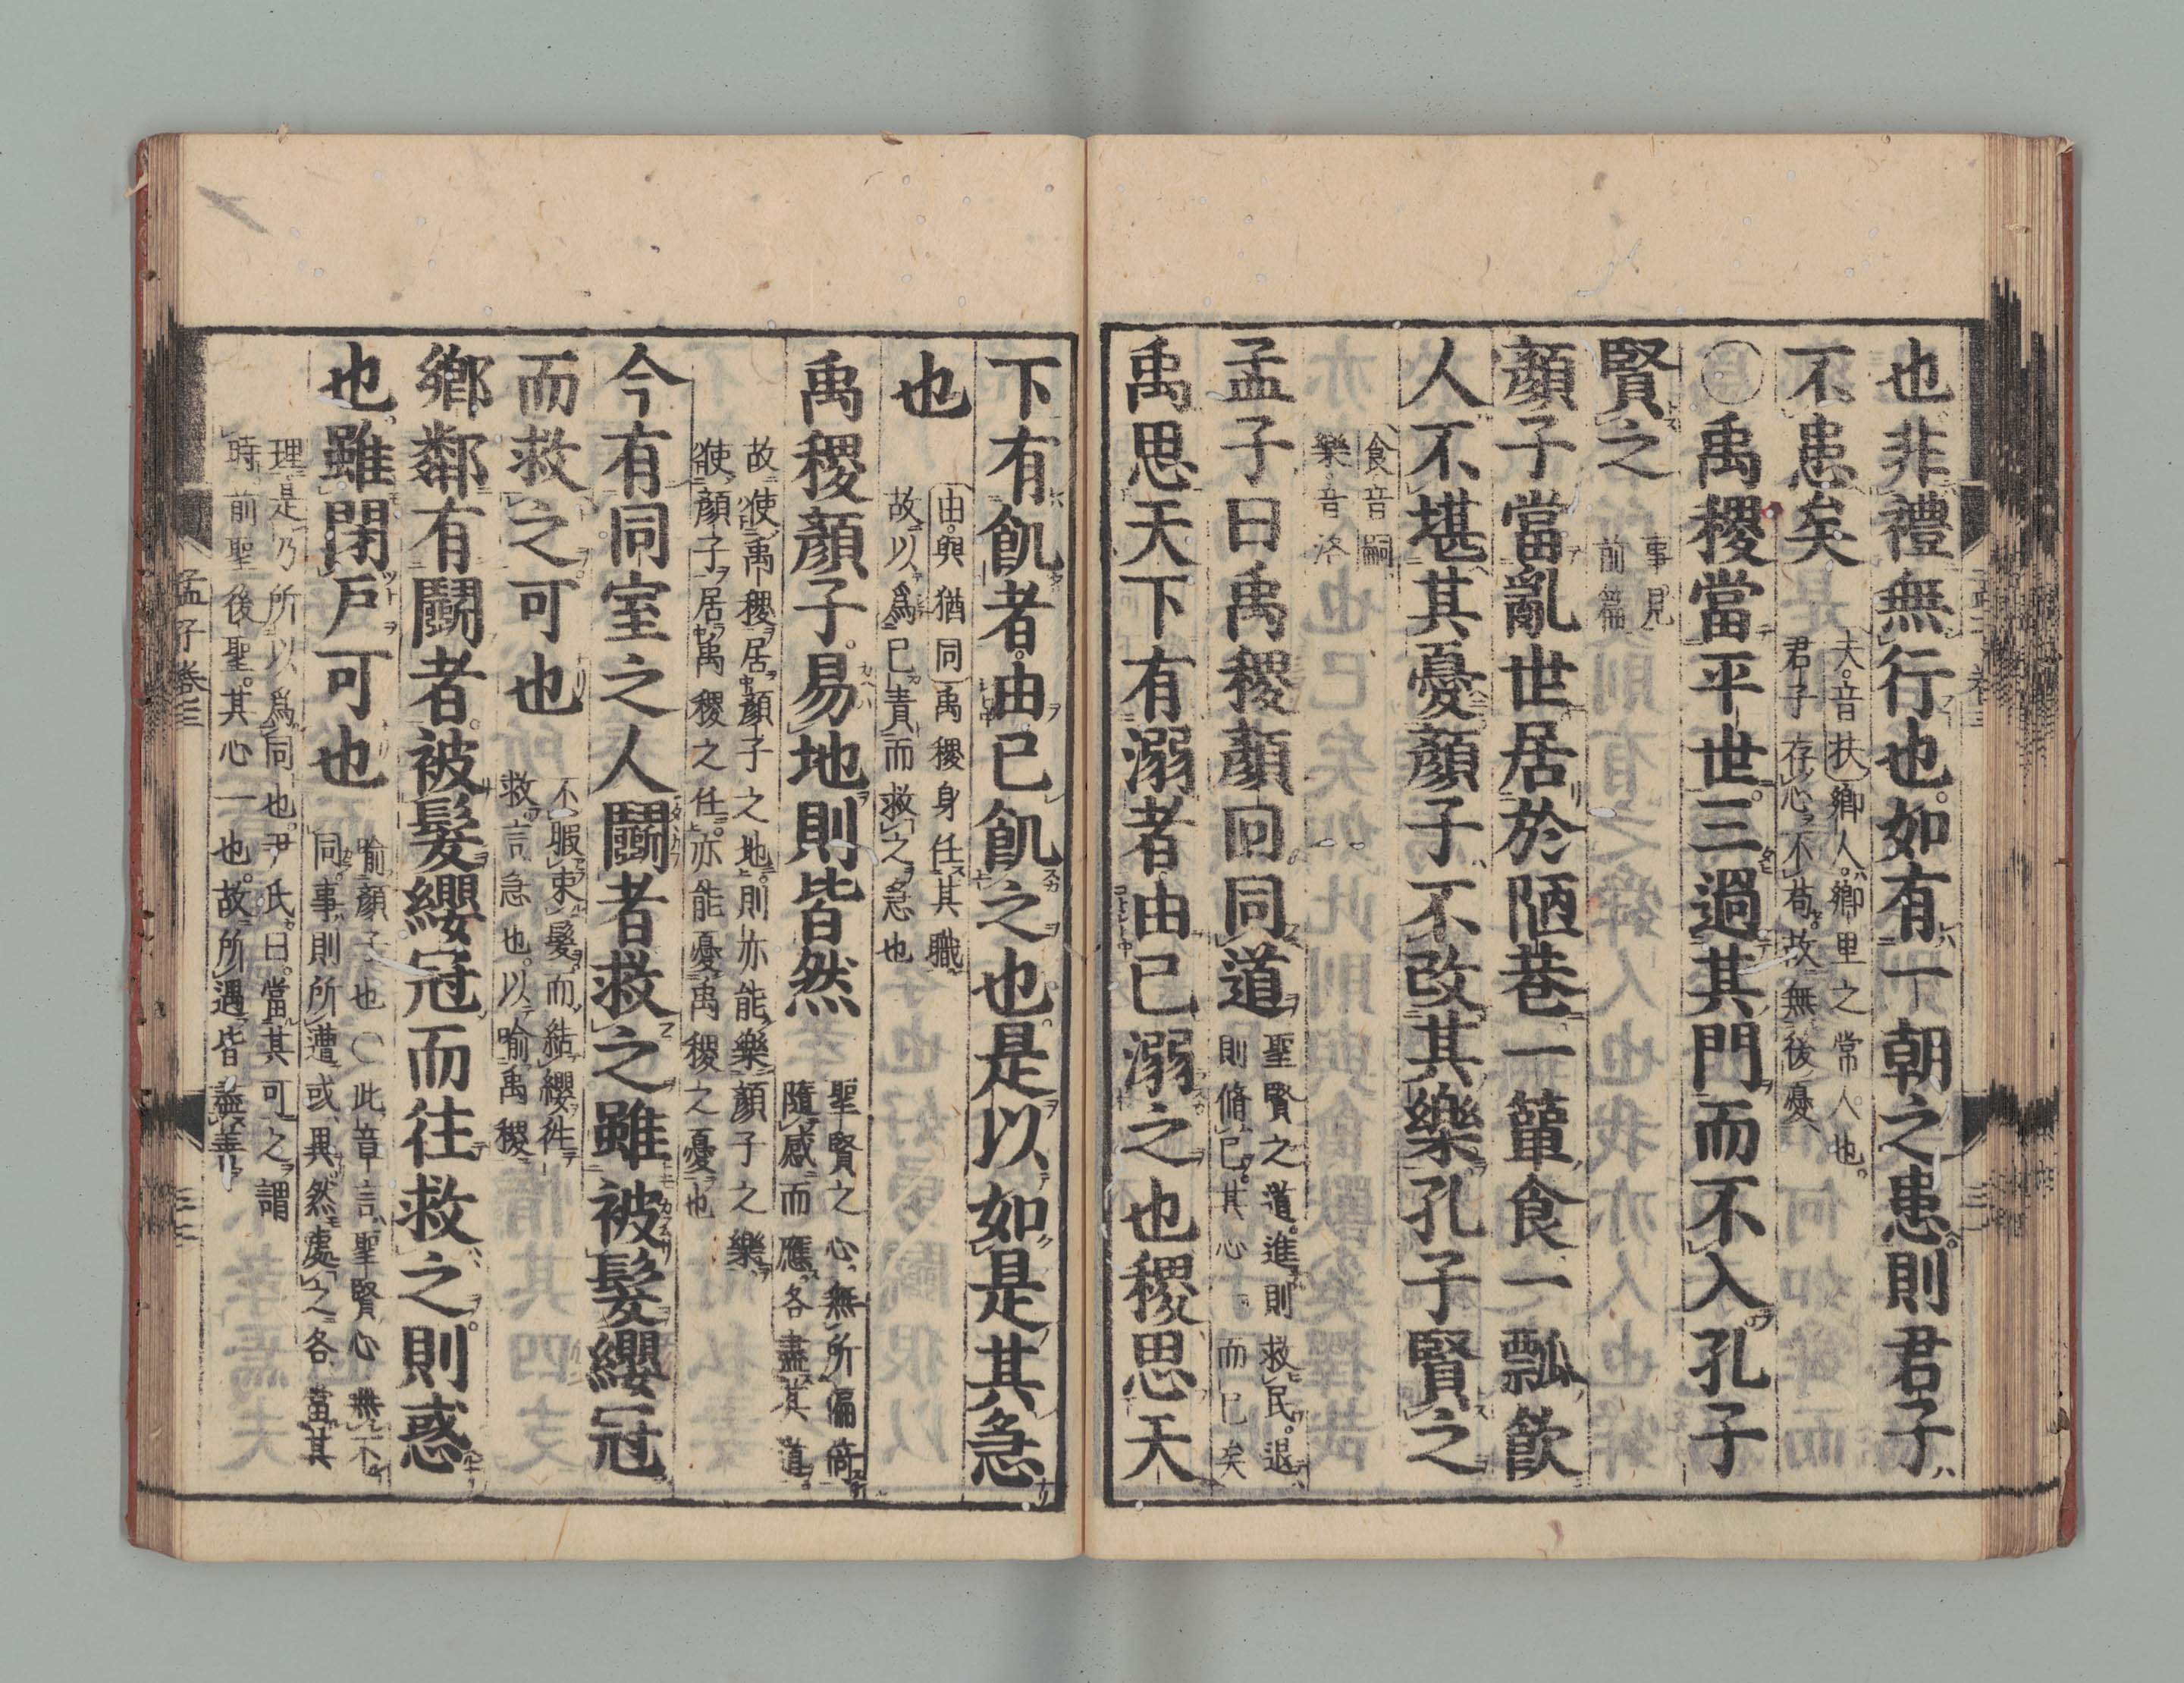 也非禮無行也如有一朝之患則君子
不患矣
夫音扶鄉人鄉里之常人也
君子存心不苟故無後憂
〇禹稷當平世三過其門而不入孔子
賢之
事見
前篇
顏子當亂世居於陋巷一簞食一瓢飲
人不堪其憂顏子不改其樂孔子賢之
食音嗣
樂音洛
孟子曰禹稷顏回同道
聖賢之道進則救民退
則脩己其心而已矣
禹思天下有溺者由己溺之也稷思天
下有飢者由己飢之也是以如是其急
也
由與猶同禹稷身任其職
故以爲己責而救之急也
禹稷顏子易地則皆然
聖賢之心無所偏倚
隨感而應各盡其道
故使禹稷居顏子之地則亦能樂顏子之樂
使顏子居禹稷之任亦能憂禹稷之憂也
今有同室之人鬭者救之雖被髮纓冠
而救之可也
不暇束髮而結纓往
救言急也以喻禹稷
鄉鄰有鬭者被髮纓冠而往救之則惑
也雖閉戶可也
喻顏子也〇此章言聖賢心無不
同事則所遭或異然處之各當其
理是乃所以爲同也尹氏曰當其可之謂
時前聖後聖其心一也故所遇皆盡善
孟子卷三